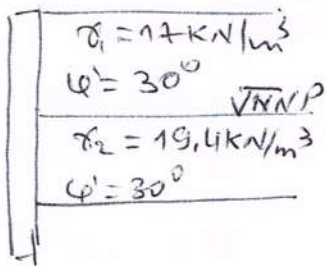 γ₁ = 17 KN/m³
φ' = 30°
√NNP
γ₂ = 19,4 KN/m³
φ' = 30°